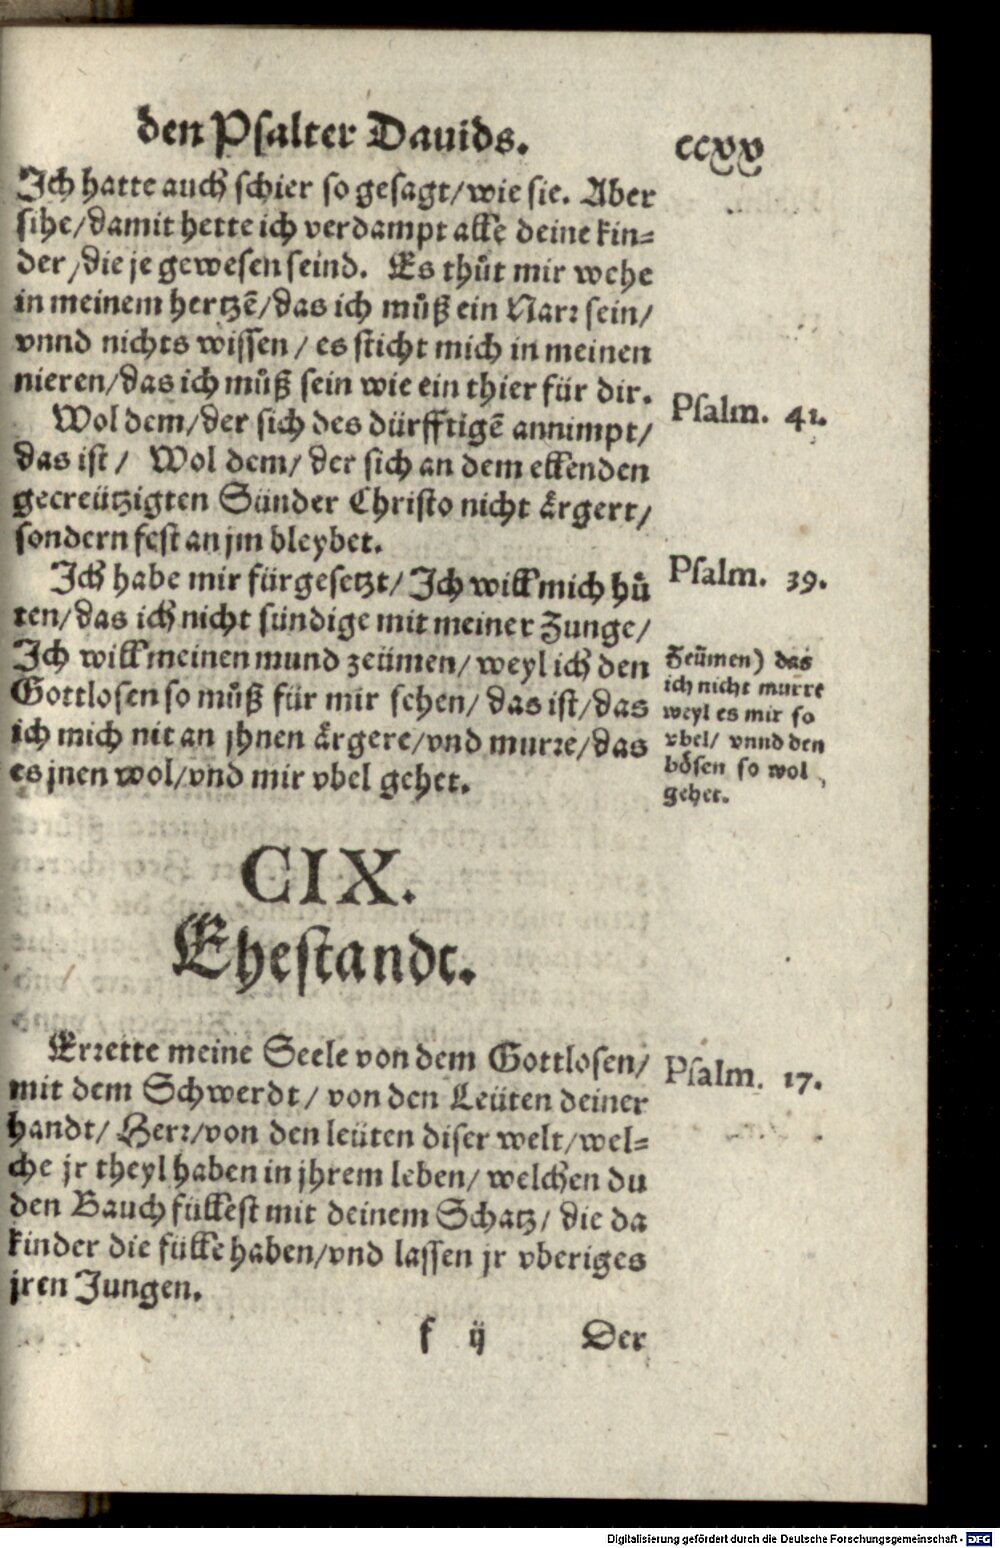 den Psalter Dauids.
ccxx
Ich hatte auch schier so gesagt/wie sie. Aber
sihe/damit hette ich verdampt alle deine kin=
der/die je gewesen seind. Es thůt mir wehe
in meinem hertzẽ/das ich můß ein Narr sein/
vnnd nichts wissen/es sticht mich in meinen
nieren/das ich můß sein wie ein thier für dir.
Wol dem/der sich des dürfftigẽ annimpt/
das ist/ Wol dem/ der sich an dem ellenden
gecreützigten Sünder Christo nicht årgert/
sondern fest an jm bleybet.
Psalm. 41.
Ich habe mir fürgesetzt/Ich will mich hů
ten/das ich nicht sündige mit meiner Zunge/
Ich will meinen mund zeümen/weyl ich den
Gottlosen so můß für mir sehen/das ist/das
ich mich nit an jhnen årgere/vnd murre/das
es jnen wol/vnd mir vbel gehet.
Psalm. 39.
Zeümen) das
ich nicht murre
weyl es mir so
vbel/ vnnd den
bösen so wol
gehet.
CIX.
Ehestandt.
Errette meine Seele von dem Gottlosen/
mit dem Schwerdt/ von den Leüten deiner
handt/ Herr/von den leüten diser welt/wel=
che jr theyl haben in jhrem leben/ welchen du
den Bauch füllest mit deinem Schatz/ die da
kinder die fülle haben/vnd lassen jr vberiges
jren Jungen.
Psalm. 17.
f ij
Der
Digitalisierung gefördert durch die Deutsche Forschungsgemeinschaft - DFG